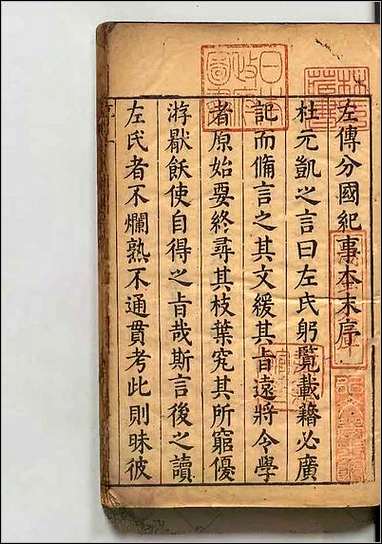 左傳分國紀事本末序
杜元凱之言曰左氏躬覧載籍必廣
記而備言之其文緩其旨遠將令學
者原始要終尋其枝葉究其所窮優
游厭飫使自得之旨哉斯言後之讀
左氏者不爛熟不通貫考此則昧彼